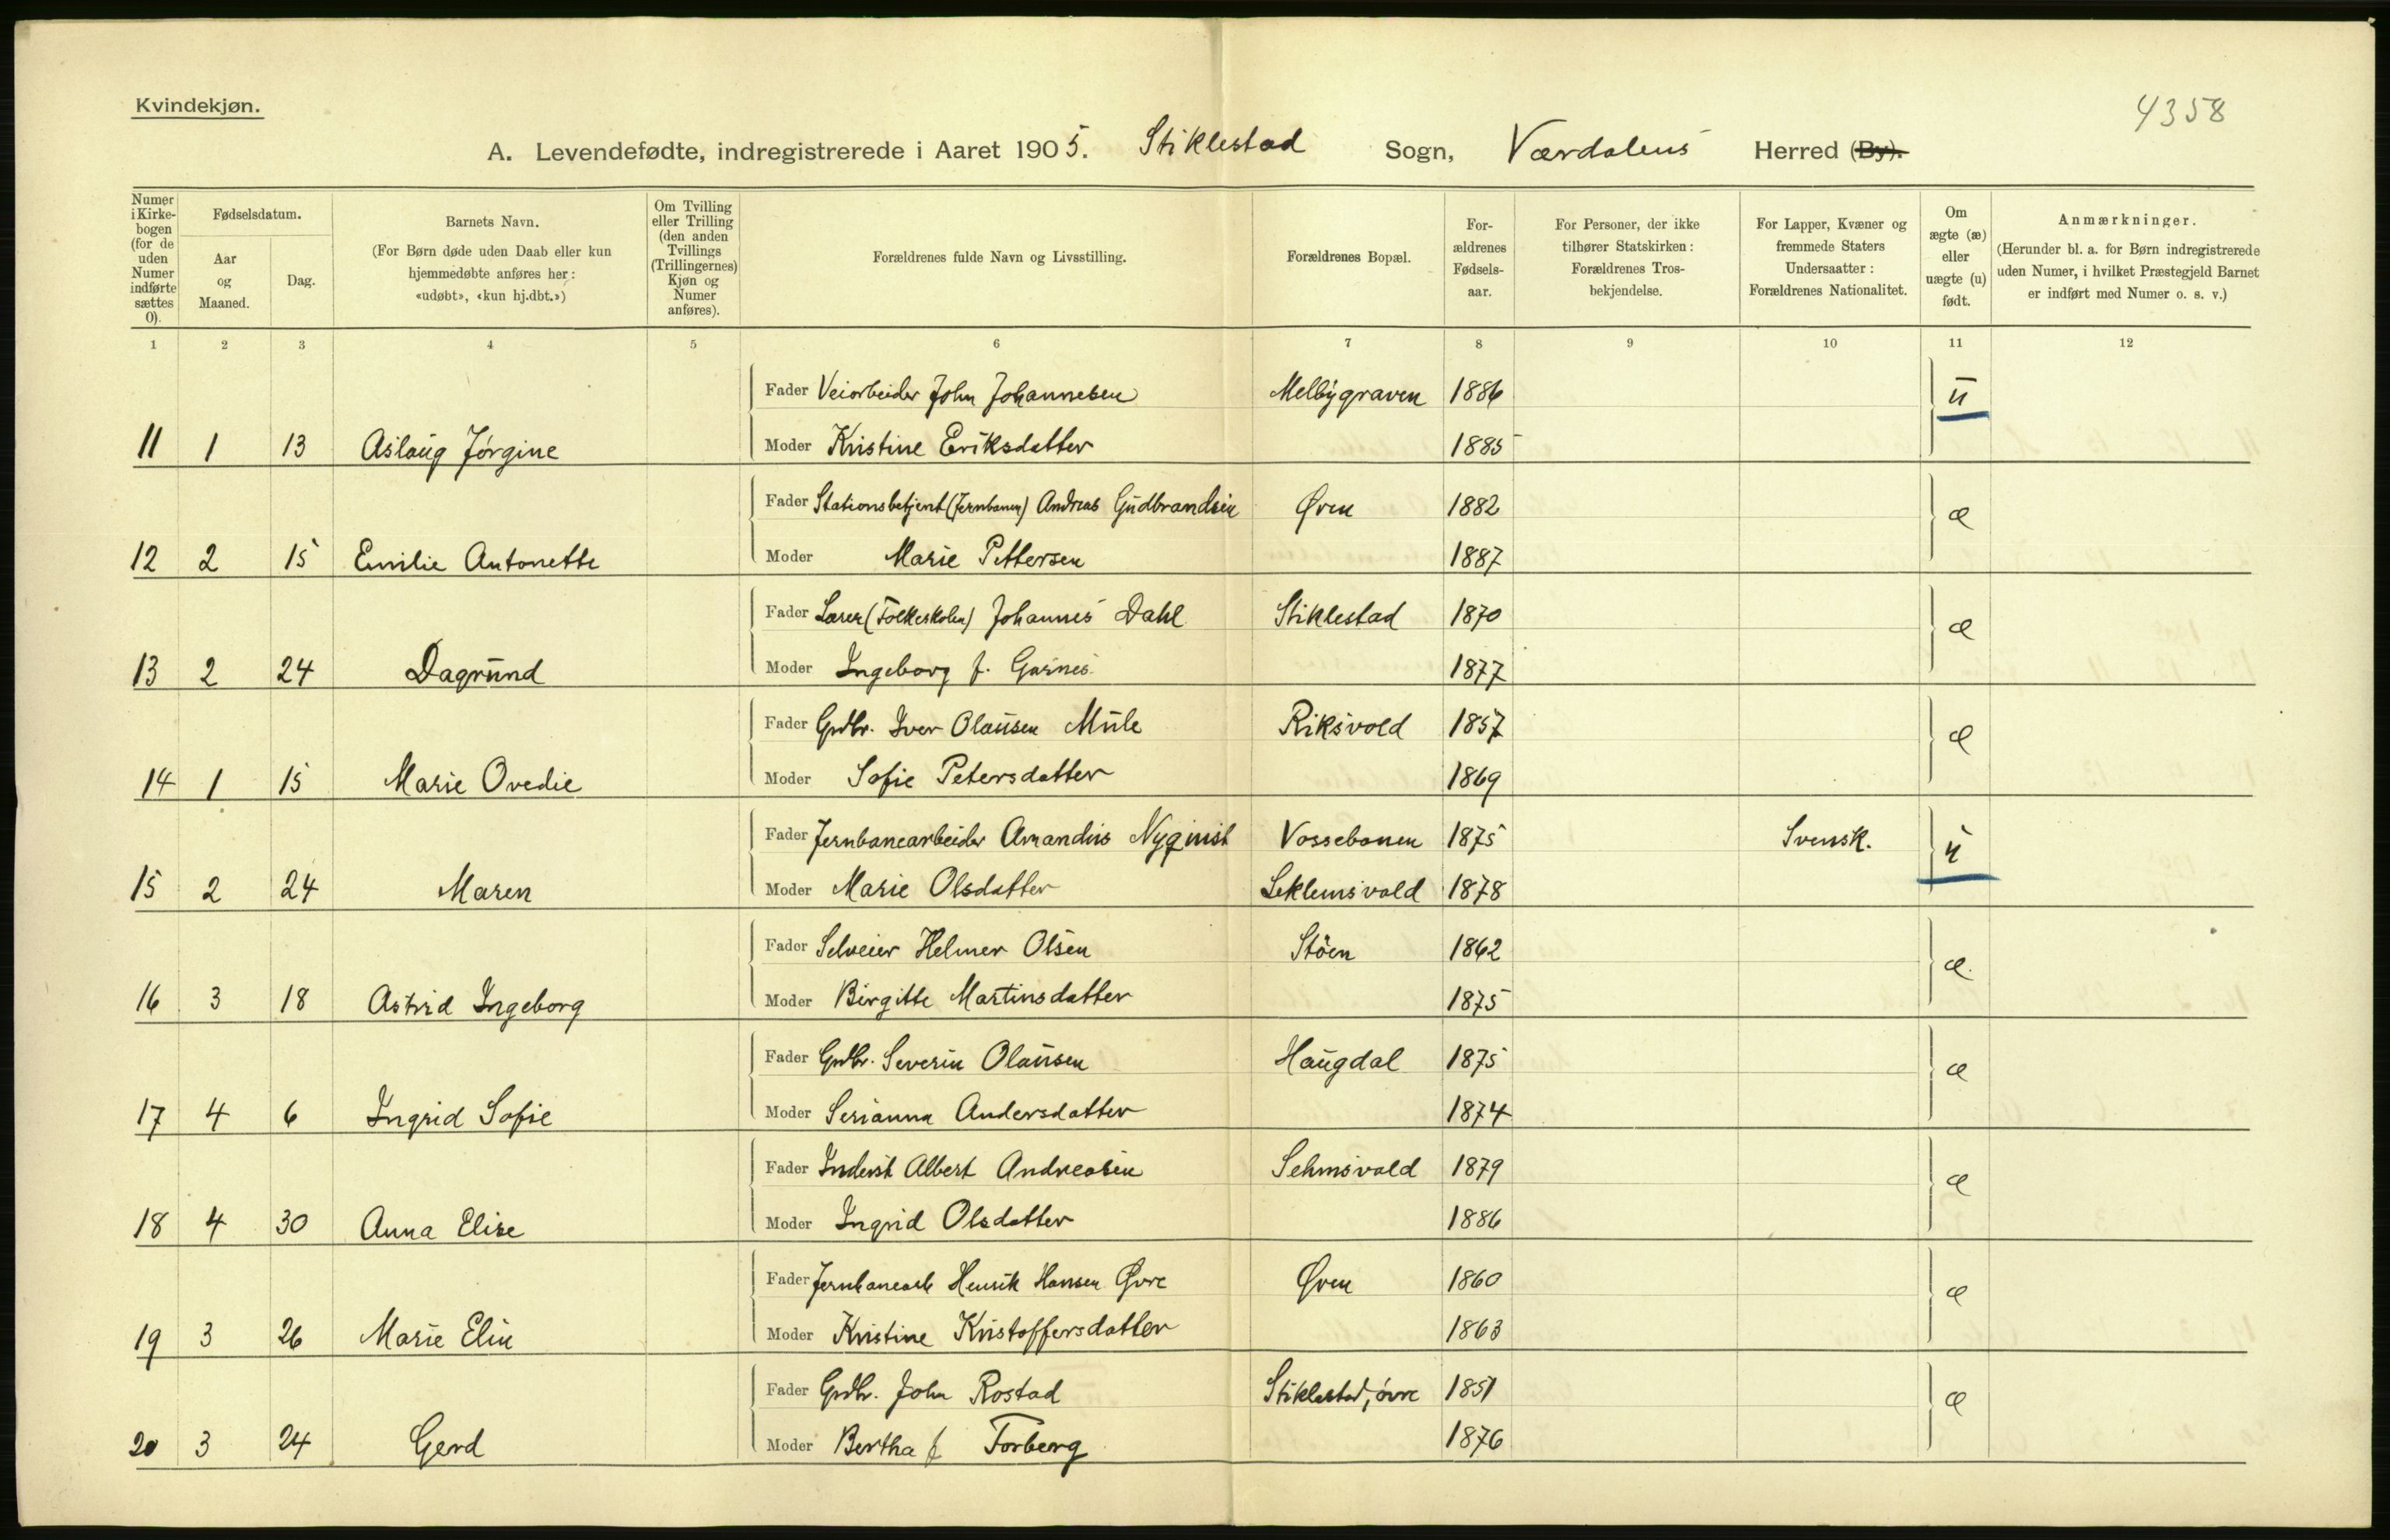 Kvindekjøn.
4358
A. Levendefødte, indregistrerede i Aaret 1905. Stiklestad Sogn, Værdalens Herred (By).
Numer i Kirkebogen (for de uden Numer indførte sættes 0).
Fødselsdatum.
Aar og Maaned.
Dag.
Barnets Navn.
(For Børn døde uden Daab eller kun hjemmedøbte anføres her: «udøbt», «kun hj.dbt.»)
Om Tvilling eller Trilling (den anden Tvillings (Trillingernes) Kjøn og Numer anføres).
Forældrenes fulde Navn og Livsstilling.
Forældrenes Bopæl.
Forældrenes Fødselsaar.
For Personer, der ikke tilhører Statskirken: Forældrenes Trosbekjendelse.
For Lapper, Kvæner og fremmede Staters Undersaatter: Forældrenes Nationalitet.
Om ægte (æ) eller uægte (u) født.
Anmærkninger.
(Herunder bl. a. for Børn indregistrerede uden Numer, i hvilket Præstegjeld Barnet er indført med Numer o. s. v.)
1 2 3 4 5 6 7 8 9 10 11 12
Fader Veiarbeider John Johannesen Melbygraven 1886 u
11 1 13 Aslaug Jørgine Moder Kristine Eriksdatter 1885
Fader Stationsbetjent (Jernbanen) Andreas Gudbrandsen Øren 1882 æ
12 2 15 Emilie Antonette Moder Marie Pettersen 1887
Fader Lærer (Folkeskolen) Johannes Dahl Stiklestad 1870 æ
13 2 24 Dagrund Moder Ingeborg f. Garnes 1877
Fader Grdbr. Iver Olausen Mule Riksvold 1857 æ
14 1 15 Marie Ovedie Moder Sofie Petersdatter 1869
Fader Jernbanearbeider Amandus Nyqvist Vossebanen 1875 Svensk. u
15 2 24 Maren Moder Marie Olsdatter Leklemsvald 1878
Fader Selveier Helmer Olsen Støen 1862 æ.
16 3 18 Astrid Ingeborg Moder Birgitte Martinsdatter 1875
Fader Grdbr. Severin Olausen Haugdal 1875 æ
17 4 6 Ingrid Sofie Moder Serianna Andersdatter 1874
Fader Inderst Albert Andreasen 1879 æ
18 4 30 Anna Elise Moder Ingrid Olsdatter 1886
Fader Jernbanearb Henrik Hansen Øvre Øren 1860 æ
19 3 26 Marie Elin Moder Kristine Kristoffersdatter 1863
Fader Grdbr. John Rostad Stiklestad, øvre 1851 æ
20 3 24 Gerd Moder Bertha f Forberg 1876